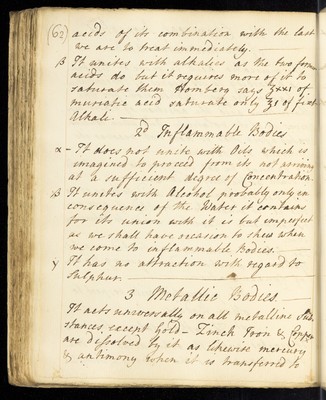 (62) acids of its combination with the last
we are to treat immediately. —
β It unites with alkalies as the two form
acids do but it requires more of it to
saturate them Homberg says ʒxxi of
muriatic acid saturate only ʒi of fixt
Alkali. —
2d Inflammable Bodies
α – It does not unite with Oils which is
imagined to proceed from its not arriving
at a sufficient degree of Concentration.
β It unites with Alcohol probably only in
consequence of the Water it contains
for its union with it is but imperfect
as we shall have occasion to shew when
we come to inflammable Bodies.
γ It has no attraction with regard to
Sulphur. —
3 Metallic Bodies —
It acts universally on all metalline Sub
stances, except Gold – Zinck Iron & Copper
are dissolved by it as likewise mercury
& antimony when it is transferred to